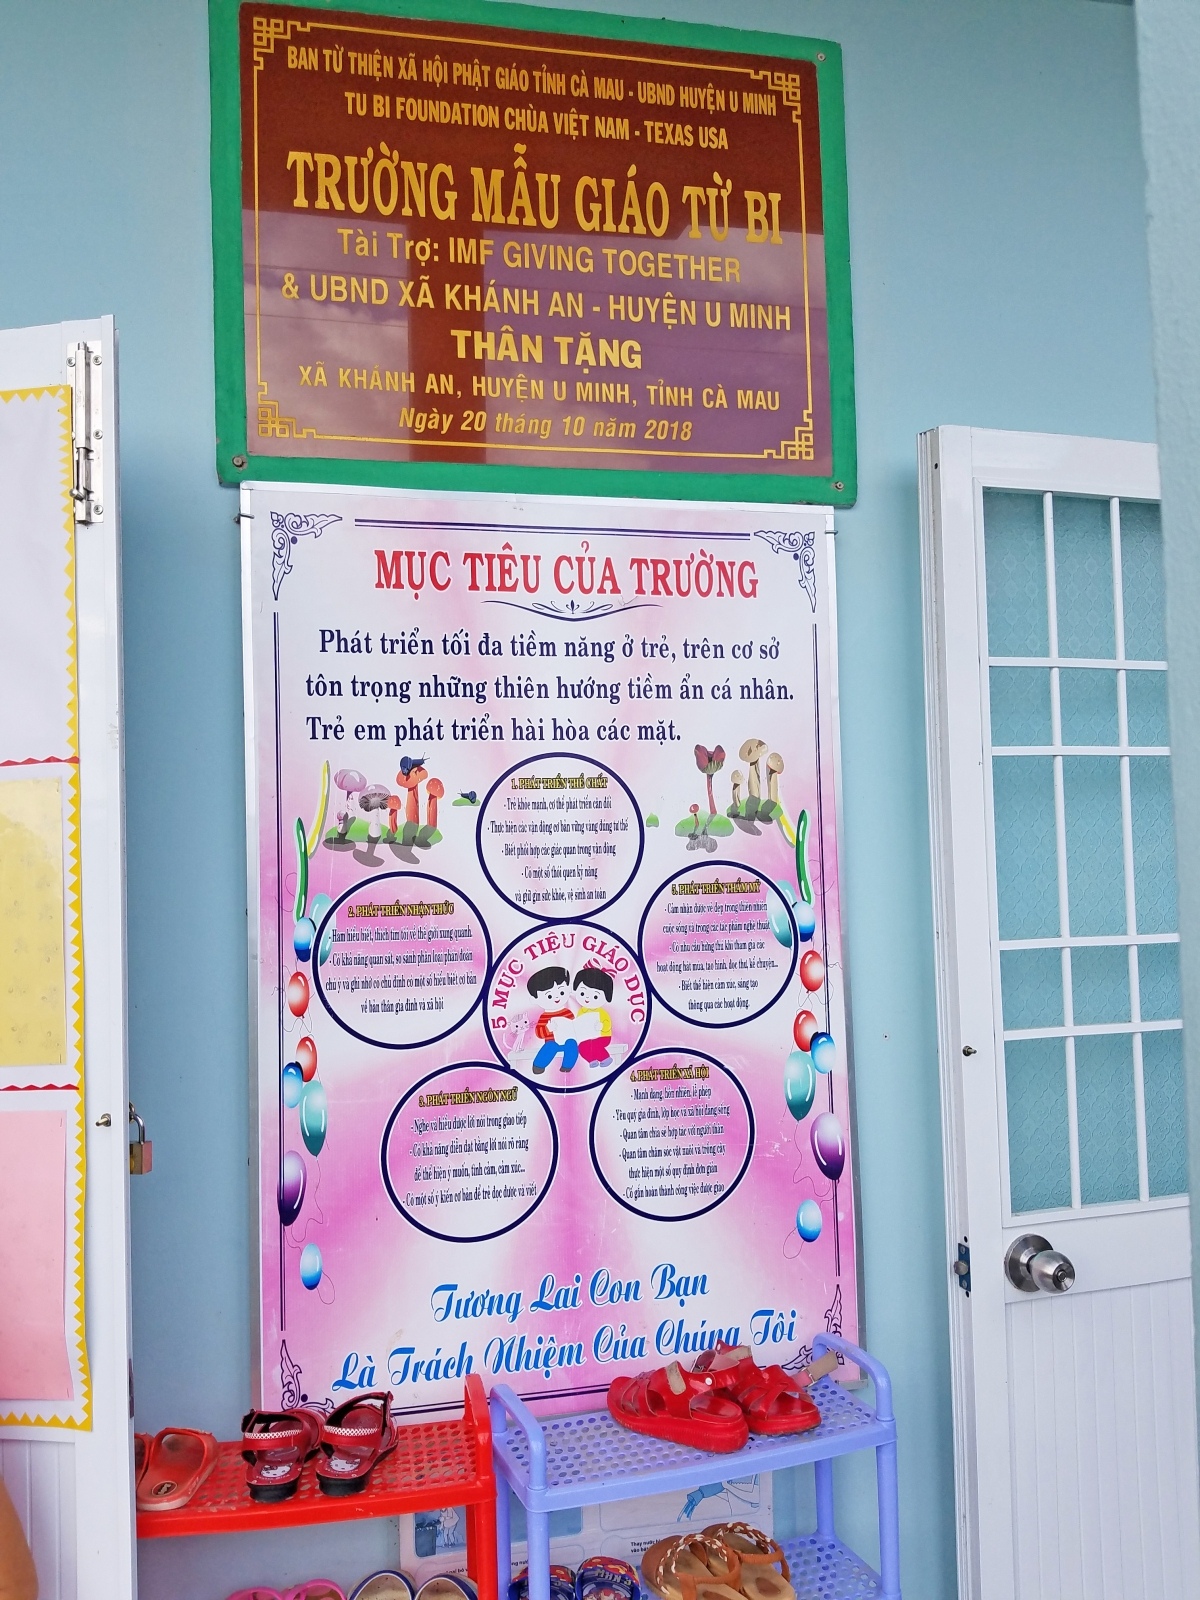 BAN TỪ THIỆN XÃ HỘI PHẬT GIÁO TỈNH CÀ MAU - UBND HUYỆN U MINH
TU BI FOUNDATION CHÙA VIỆT NAM - TEXAS USA
TRƯỜNG MẪU GIÁO TỪ BI
Tài Trợ: IMF GIVING TOGETHER
& UBND XÃ KHÁNH AN - HUYỆN U MINH
THÂN TẶNG
XÃ KHÁNH AN, HUYỆN U MINH, TỈNH CÀ MAU
Ngày 20 tháng 10 năm 2018
MỤC TIÊU CỦA TRƯỜNG
Phát triển tối đa tiềm năng ở trẻ, trên cơ sở
tôn trọng những thiên hướng tiềm ẩn cá nhân.
Trẻ em phát triển hài hòa các mặt.
1. PHÁT TRIỂN THỂ CHẤT
- Trẻ khỏe mạnh, cơ thể phát triển cân đối
- Thực hiện các vận động cơ bản vững vàng đúng tư thế
- Biết phối hợp các giác quan trong vận động
- Có một số thói quen kỹ năng
và giữ gìn sức khỏe, vệ sinh an toàn
2. PHÁT TRIỂN NHẬN THỨC
- Ham hiểu biết, thích tìm tòi về thế giới xung quanh.
- Có khả năng quan sát, so sánh phân loại phán đoán
chú ý và ghi nhớ có chủ định có một số hiểu biết cơ bản
về bản thân gia đình và xã hội
5. PHÁT TRIỂN THẨM MỸ
- Cảm nhận được vẻ đẹp trong thiên nhiên
cuộc sống và trong các tác phẩm nghệ thuật
- Có nhu cầu hứng thú khi tham gia các
hoạt động hát múa, tạo hình, đọc thơ, kể chuyện...
- Biết thể hiện cảm xúc, sáng tạo
thông qua các hoạt động.
5 MỤC TIÊU GIÁO DỤC
3. PHÁT TRIỂN NGÔN NGỮ
- Nghe và hiểu được lời nói trong giao tiếp
- Có khả năng diễn đạt bằng lời nói rõ ràng
để thể hiện ý muốn, tình cảm, cảm xúc...
- Có một số ý kiến cơ bản để trẻ đọc được và viết
4. PHÁT TRIỂN XÃ HỘI
- Mạnh dạng, hồn nhiên, lễ phép
- Yêu quý gia đình, lớp học và xã hội đang sống
- Quan tâm chia sẻ hợp tác với người thân
- Quan tâm chăm sóc vật nuôi và trồng cây
thực hiện một số quy định đơn giản
- Cố gắn hoàn thành công việc được giao
Tương Lai Con Bạn
Là Trách Nhiệm Của Chúng Tôi